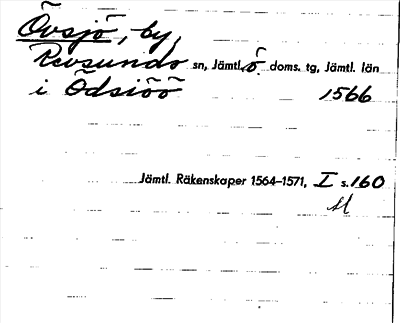 Övsjö, by,
Revsunds sn, Jämtl. ö. doms. tg, Jämtl. län
i Ödsiöö 1566
Jämtl. Räkenskaper 1564–1571, I s. 160